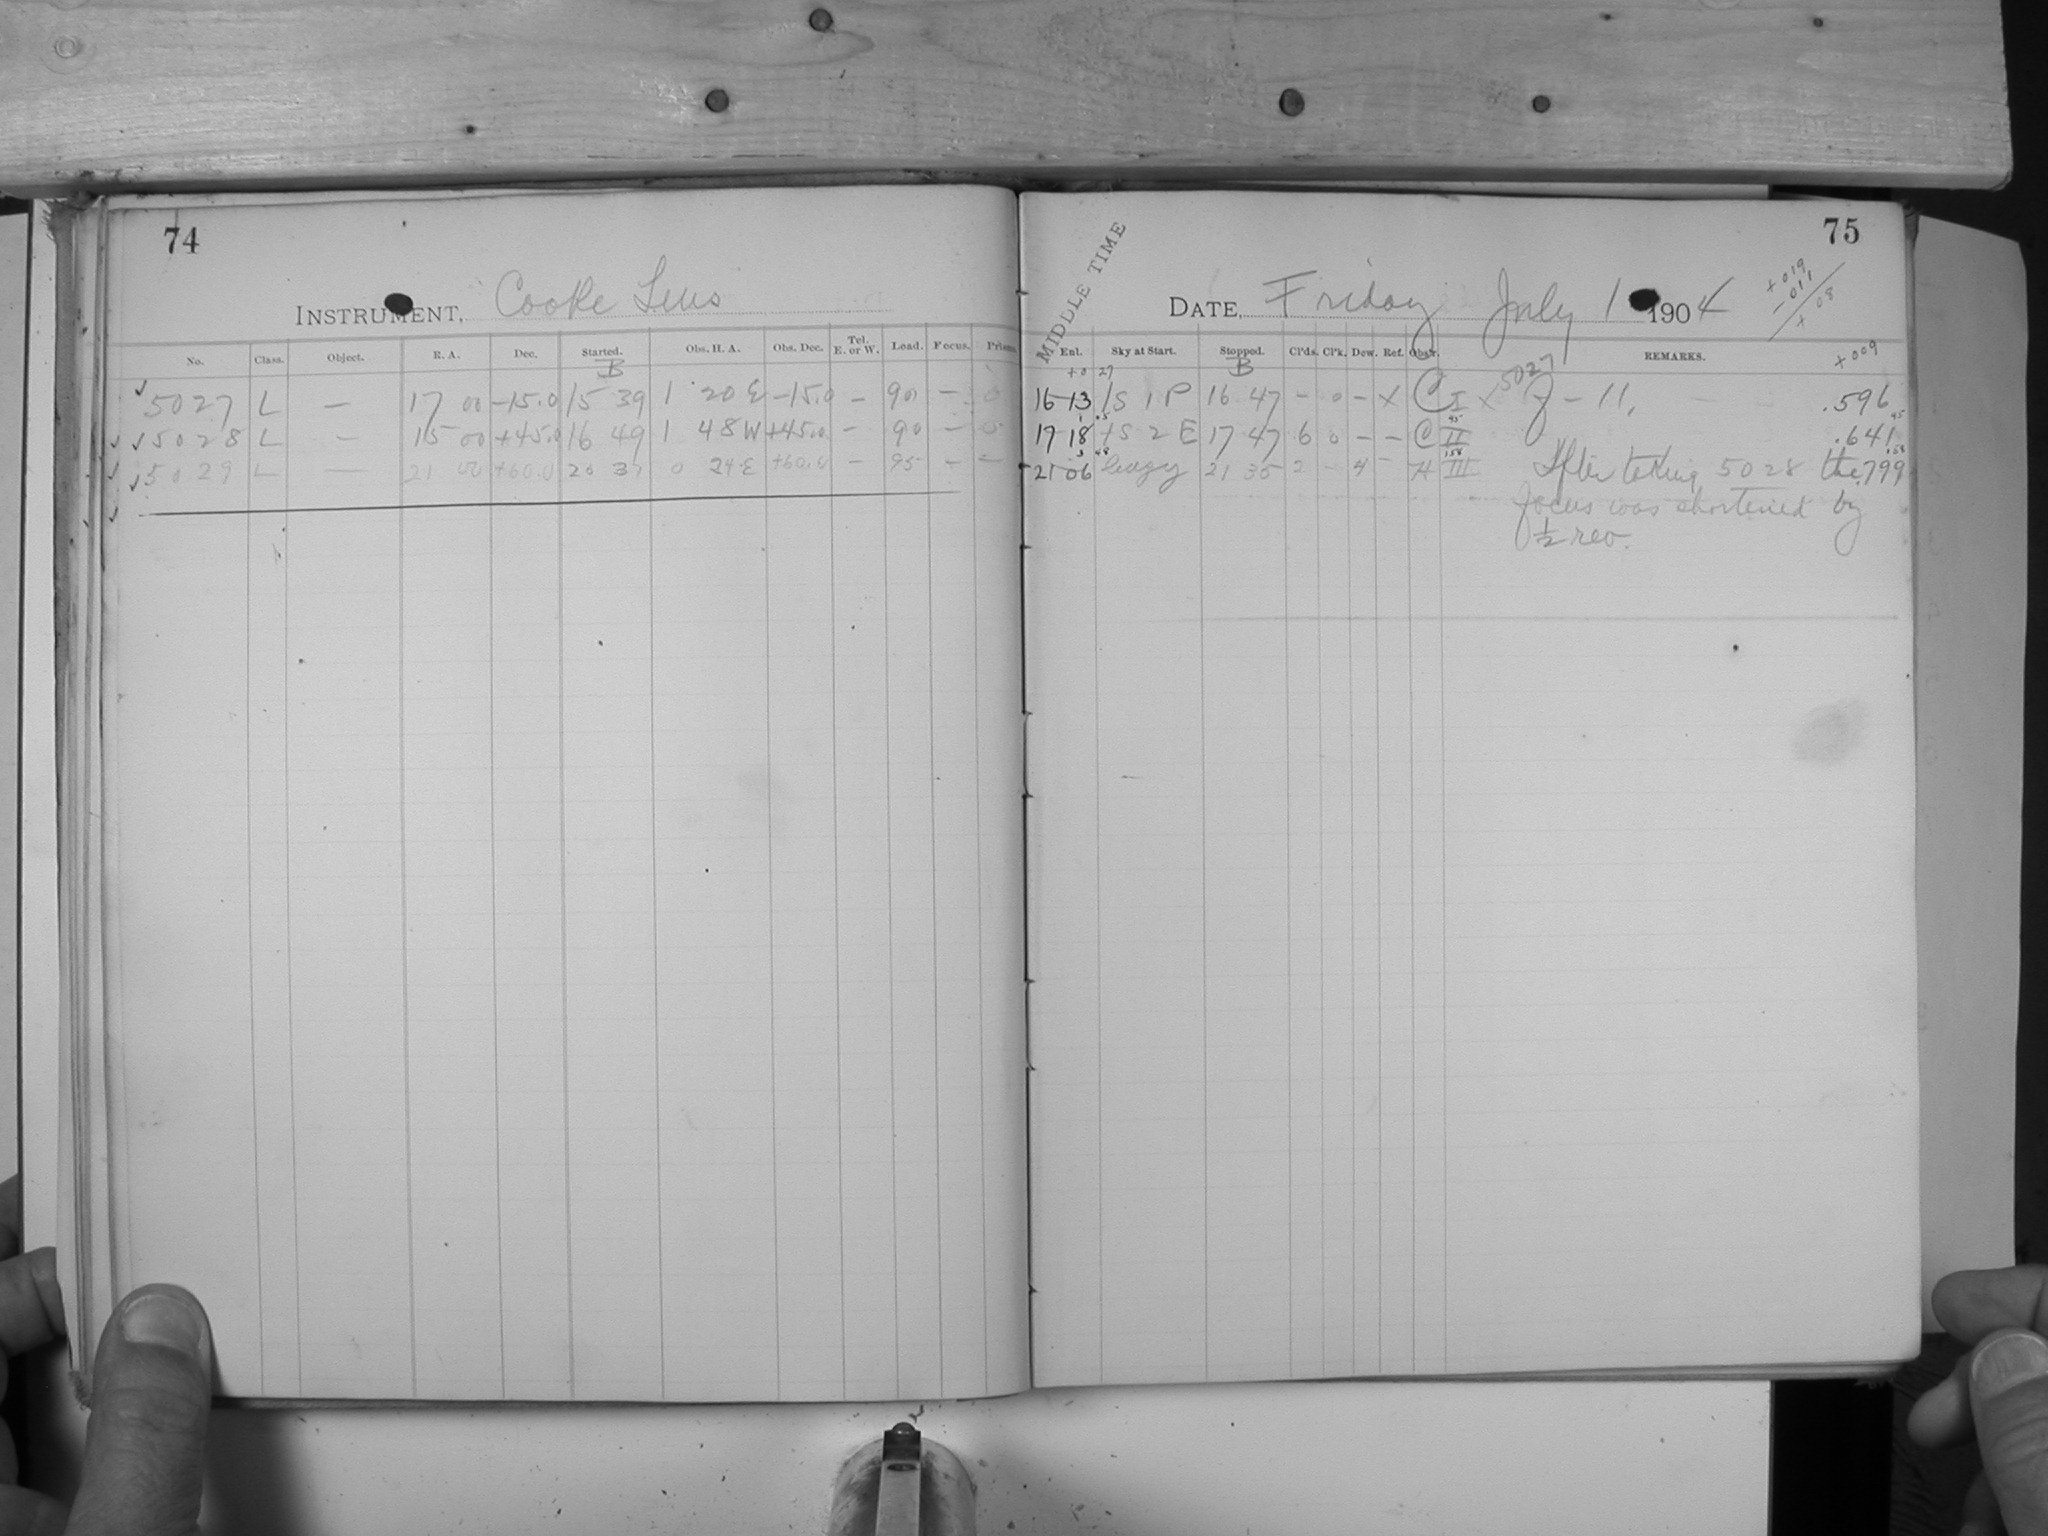 74
INSTRUMENT, Cooke Lens
No. Class. Object. R. A. Dec. Started. Obs. H. A. Obs. Dec. Tel. E. or W. Lead. Focus. Prism.
B
5027 L — 17 00 -15.0 15 39 1 20 E -15.0 — 90 — 0
5028 L — 15 00 +45.0 16 49 1 48 W +45.0 — 90 — 0
5029 L — 21 00 +60.0 20 37 0 24 E +60.0 — 95 — —
75
MIDDLE TIME
DATE, Friday July 1 1904
+019
-011
+08
Ent. Sky at Start. Stopped. Cl'ds. Cl'k. Dew. Ref. Obs'r. REMARKS. +009
+0 27 B
16-13 1S 1P 16 47 - 0 - x C I x 5027 J - 11, .596
1 .5 45 45
17-18 +S 2 E 17 47 6 0 - - C II .641
3 48 158 158
21-06 hazy 21 35 2 - 4 - H III After taking 5028 the .799
focus was shortened by
½ rev.